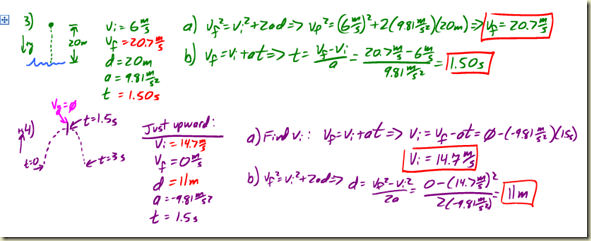 3) 20m ↓y
Vi = 6 m/s
Vf = 20.7 m/s
d = 20m
a = 9.81 m/s²
t = 1.50s
a) Vf² = Vi² + 2ad ⇒ Vf² = (6 m/s)² + 2(9.81 m/s²)(20m) ⇒ Vf = 20.7 m/s
b) Vf = Vi + at ⇒ t = (Vf - Vi)/a = (20.7 m/s - 6 m/s)/(9.81 m/s²) = 1.50s
4) Vf = Ø
t = 1.5s
t=0
t=3s
Just upward:
Vi = 14.7 m/s
Vf = 0 m/s
d = 11m
a = -9.81 m/s²
t = 1.5s
a) Find Vi: Vf = Vi + at ⇒ Vi = Vf - at = Ø - (-9.81 m/s²)(1.5s)
Vi = 14.7 m/s
b) Vf² = Vi² + 2ad ⇒ d = (Vf² - Vi²)/2a = (0 - (14.7 m/s)²)/(2(-9.81 m/s²)) = 11m